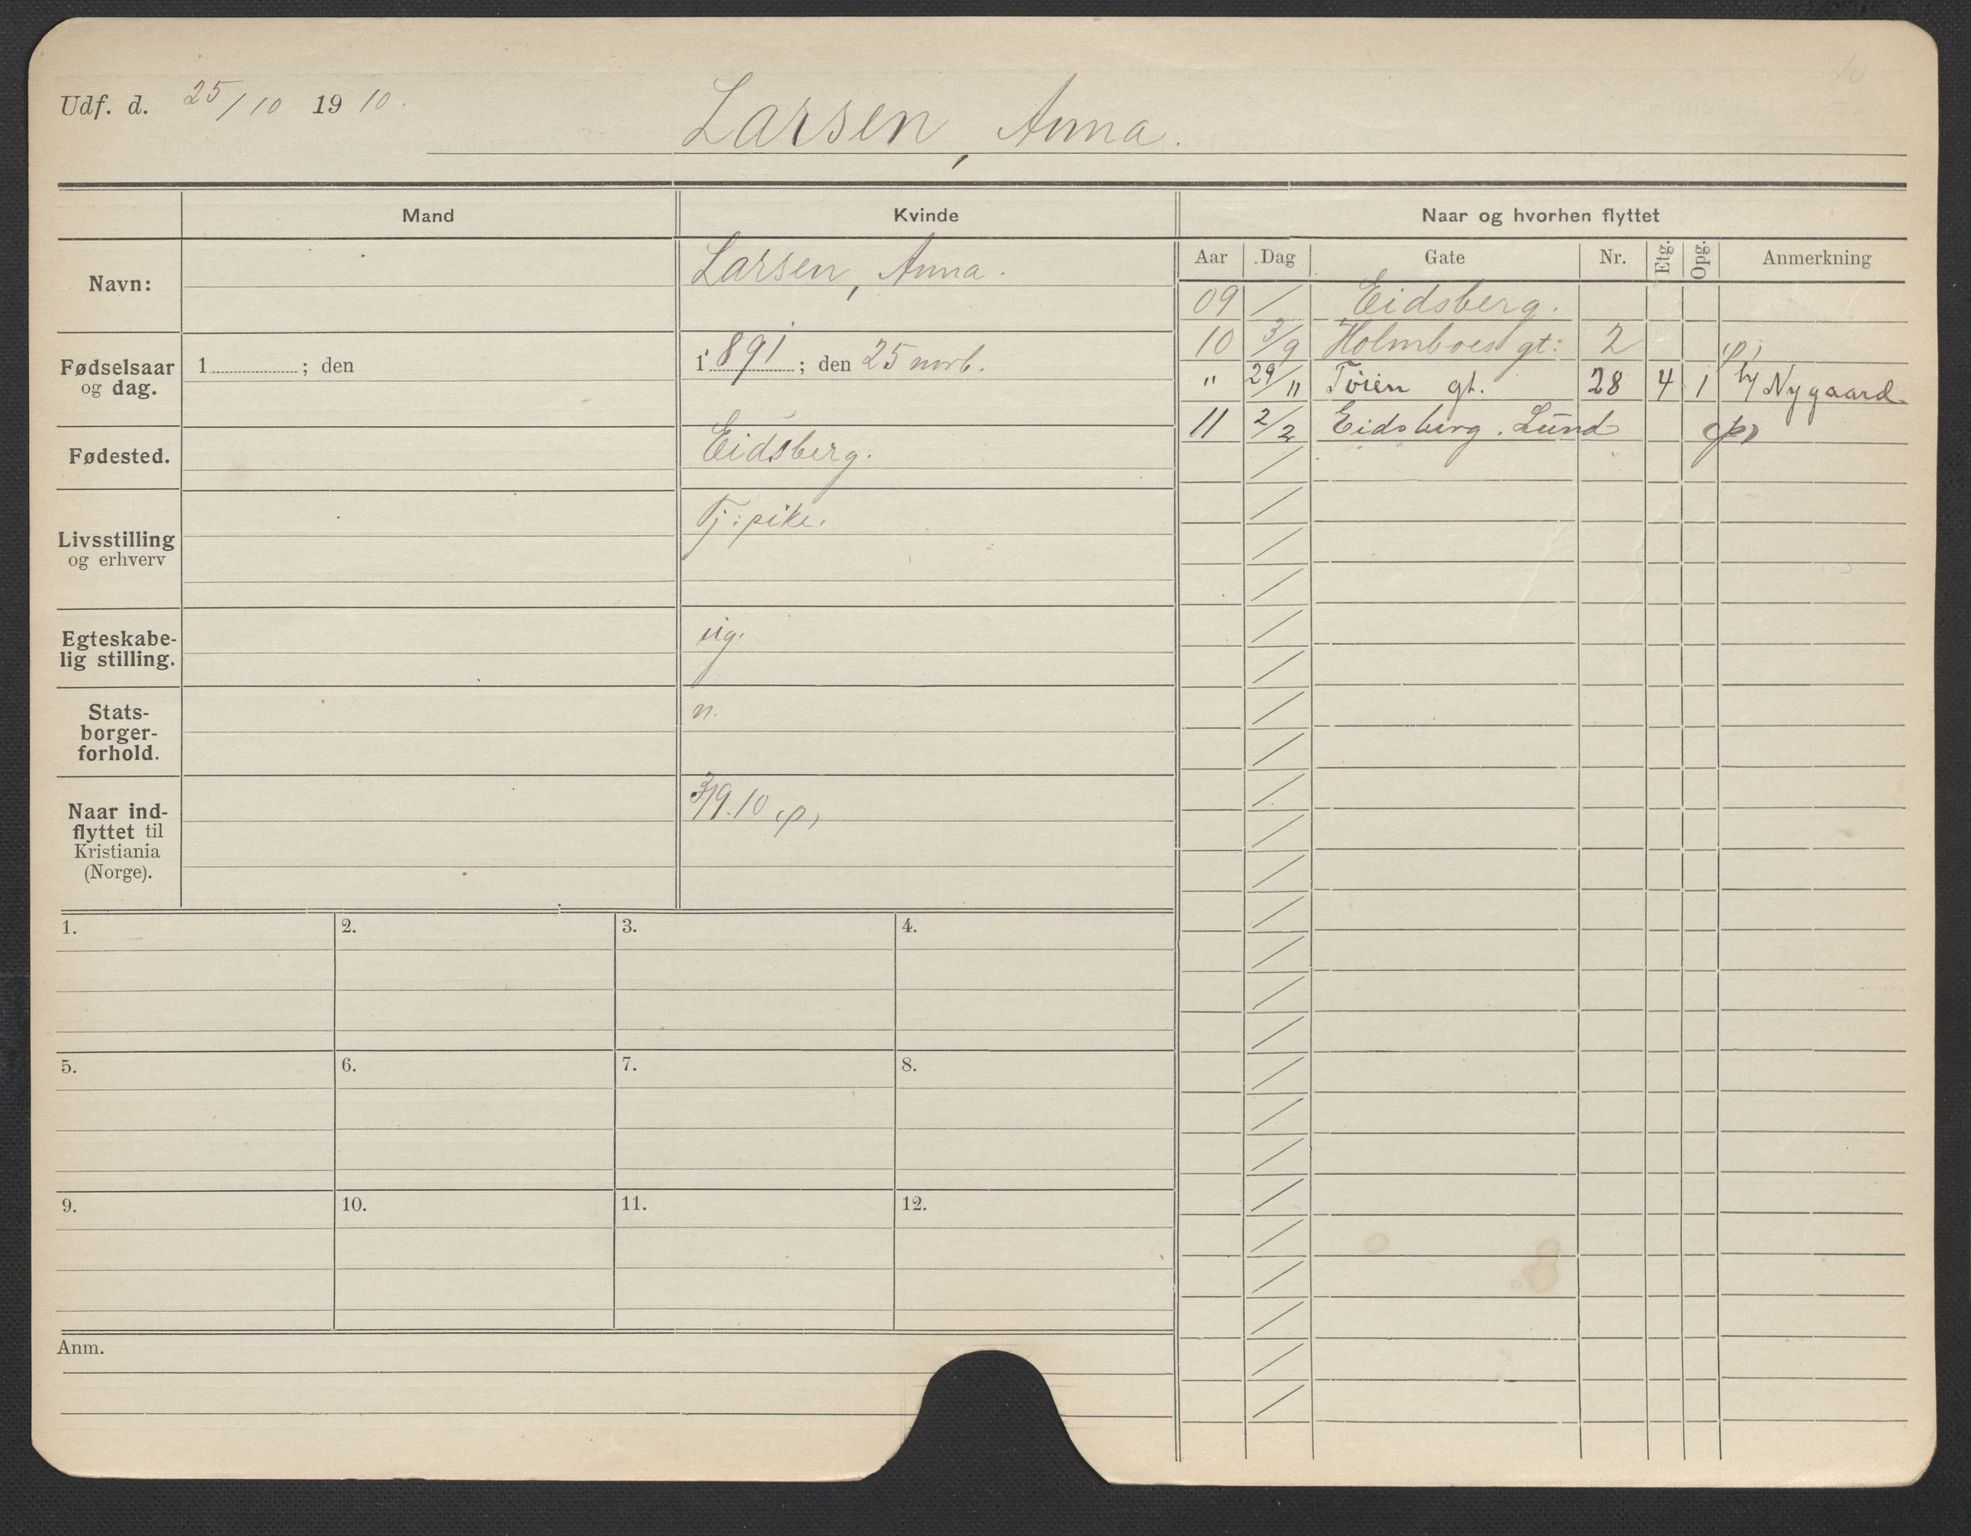 Udf. d. 25/10 1910.
Larsen, Anna.
Mand
Kvinde
Naar og hvorhen flyttet
Aar Dag Gate Nr. Etg. Opg. Anmerkning
Navn:
Larsen, Anna.
Fødselsaar og dag.
1 ; den
1891 ; den 25 novb.
Fødested.
Eidsberg.
Livsstilling og erhverv
Tj: pike.
Egteskabe-
lig stilling.
ug.
Stats-
borger-
forhold.
n.
Naar ind-
flyttet til
Kristiania
(Norge).
3/9.10 (p)
09 / Eidsberg.
10 3/9 Holmboes gt. 2 (p)
" 29/11 Tøien gt. 28 4 1 h/ Nygaard
11 2/2 Eidsberg. Lund (p)
1. 2. 3. 4.
5. 6. 7. 8.
9. 10. 11. 12.
Anm.
10